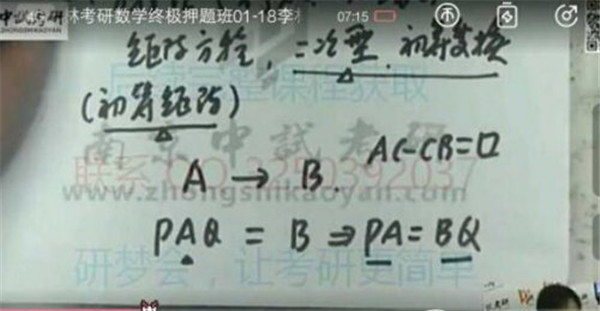 中試考研 ZHONGSHIKAOYAN 林考研数学终极押题班01-18李林 07:15
矩阵方程, 二次型. 初等变换
(初等矩阵)
南京中試考研
AC-CB=口
A → B.
www.zhongshikaoyan.com
PAQ = B ⇒ PA = BQ
研梦会,让考研更简单